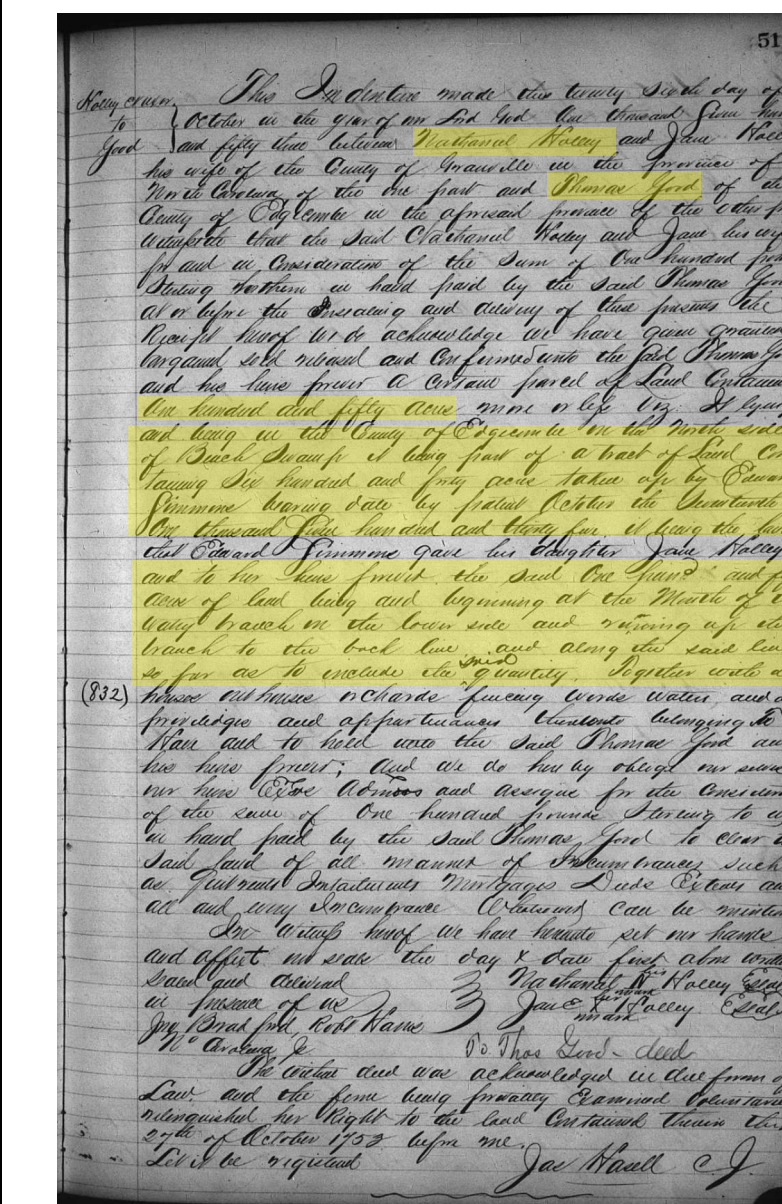 51
Holley & uxor
to
Good
This Indenture made this twenty Sixth day of
October in the year of our Lord God One thousand Seven hun
and fifty three between Nathaniel Holley and Jane Holl
his wife of the County of Granville in the province of
North Carolina of the one part and Thomas Good of the
County of Edgcombe in the aforesaid province of the other p
witnesseth that the said Nathaniel Holley and Jane his wi
for and in Consideration of the Sum of One hundred po
Sterling to them in hand paid by the said Thomas Goo
at or before the Ensealing and delivery of these presents the
Receipt hereof we do acknowledge we have given granted
bargained sold released and Confirmed unto the said Thomas Go
and his heirs forever A certain parcel of Land Containi
One hundred and fifty acres more or less viz. It lying
and being in the County of Edgecombe on the North side
of Beach Swamp it being part of a tract of Land Con
taining Six hundred and forty acres taken up by Edwar
Simmons bearing date by patent October the Seventeenth
One thousand Seven hundred and thirty four it being the lan
that Edward Simmons gave his daughter Jane Holley
and to her heirs forever, the said One hund and f
acres of land being and beginning at the Mouth of
branch on the lower side and running up the
branch to the back line and along the said lin
so far as to include the said quantity. Together with a
(832)
houses outhouses orchards fencing woods water, and a
priviledges and appurtenances thereunto belonging To
Have and to hold unto the said Thomas Good an
his heirs forever; And we do hereby oblige our selves
our heirs Exrs Admrs and assigns for the Consider
of the sum of One hundred pounds Sterling to u
in hand paid by the said Thomas Good to clear
said land of all manner of Incumbrances such
as Mortgages Deeds an
all and every Incumbrance Whatsoever can be
In Witness hereof we have hereunto set our hands
and affixt our seales the day & date first above writt
sealed and delivered
in presence of us
Nathaniel his mark Holley Eseal
Jane X her mark Holley Eseal
Jno Bradford, Robt Harris
No Carolina
To Thos Good - deed
The within deed was acknowledged in due form o
Law and the feme being privately Examined Voluntari
relinquished her Right to the land Contained therein this
27th of October 1753 before me.
Let it be registered
Jas Hasell C. J.